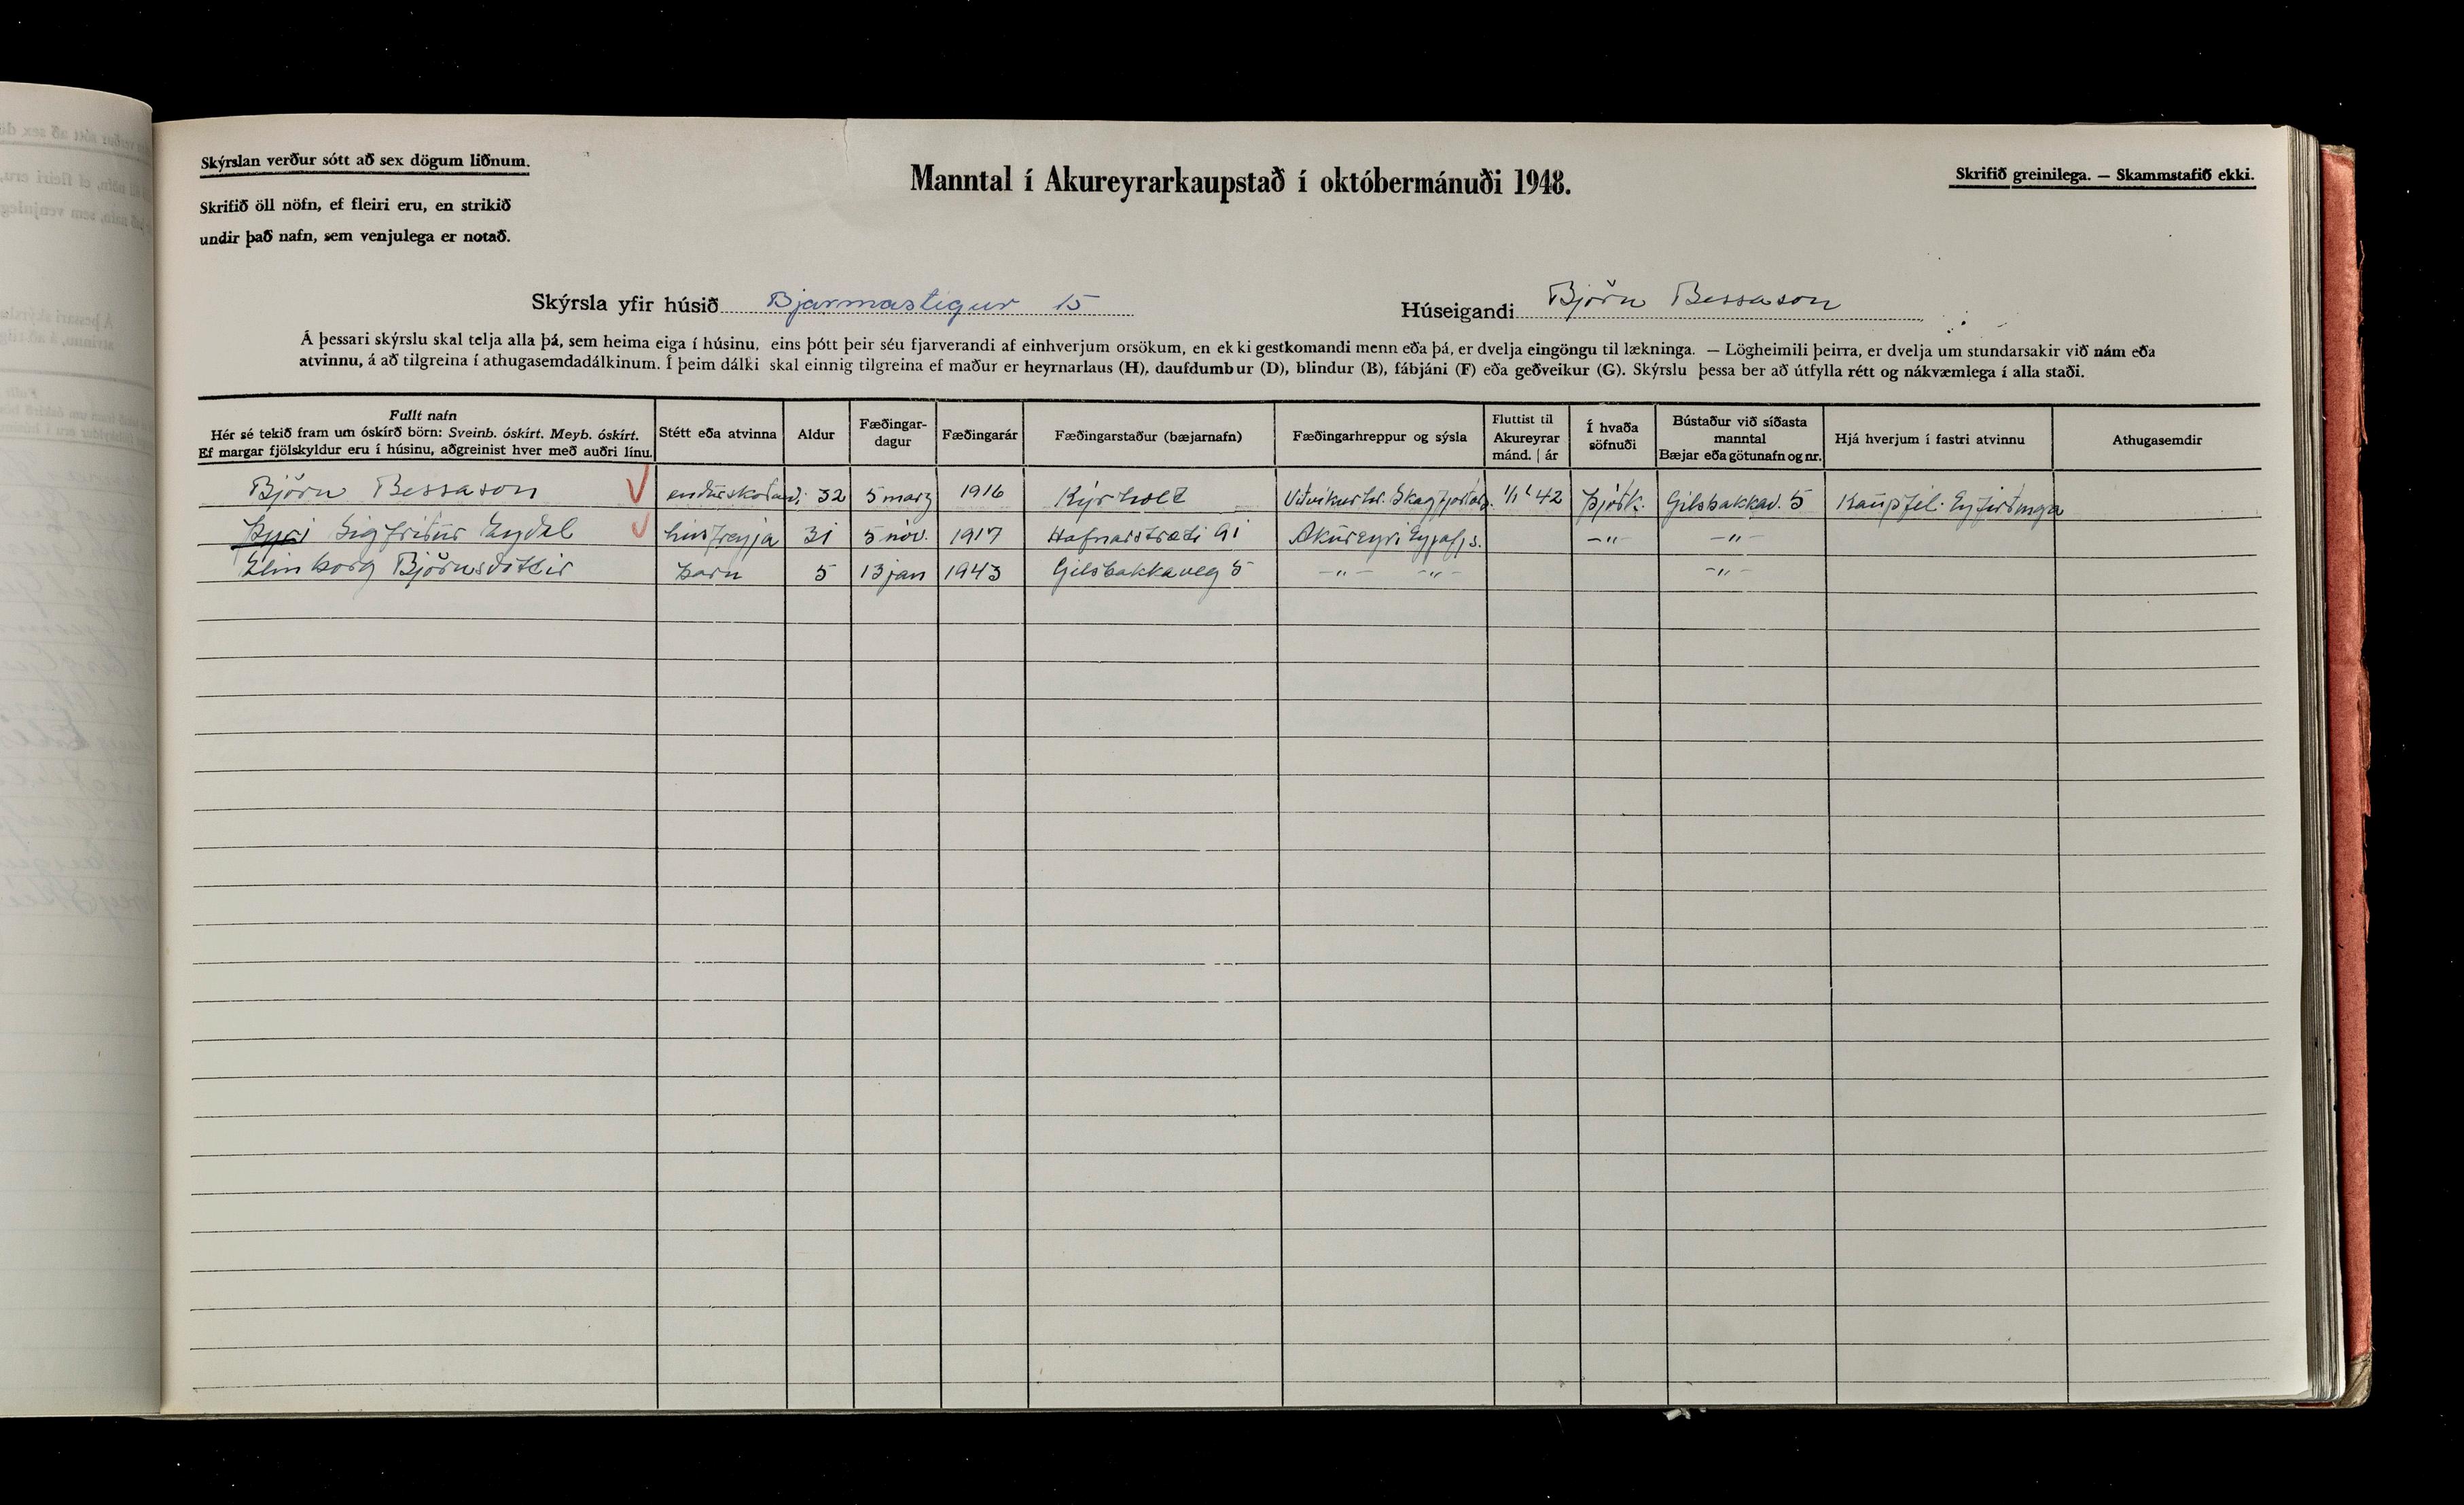 Skýrslan verður sótt að sex dögum liðnum.
Skrifið öll nöfn, ef fleiri eru, en strikið
undir það nafn, sem venjulega er notað.
Manntal í Akureyrarkaupstað í októbermánuði 1948.
Skrifið greinilega. — Skammstafið ekki.
Skýrsla yfir húsið Bjarmastigur 15
Húseigandi Björn Bessason
Á þessari skýrslu skal telja alla þá, sem heima eiga í húsinu, eins þótt þeir séu fjarverandi af einhverjum orsökum, en ekki gestkomandi menn eða þá, er dvelja eingöngu til lækninga. — Lögheimili þeirra, er dvelja um stundarsakir við nám eða
atvinnu, á að tilgreina í athugasemdadálkinum. Í þeim dálki skal einnig tilgreina ef maður er heyrnarlaus (H), daufdumbur (D), blindur (B), fábjáni (F) eða geðveikur (G). Skýrslu þessa ber að útfylla rétt og nákvæmlega í alla staði.
Fullt nafn
Hér sé tekið fram um óskírð börn: Sveinb. óskírt. Meyb. óskírt.
Ef margar fjölskyldur eru í húsinu, aðgreinist hver með auðri línu.
Stétt eða atvinna
Aldur
Fæðingar-
dagur
Fæðingarár
Fæðingarstaður (bæjarnafn)
Fæðingarhreppur og sýsla
Fluttist til
Akureyrar
mánd. | ár
Í hvaða
söfnuði
Bústaður við síðasta
manntal
Bæjar eða götunafn og nr.
Hjá hverjum í fastri atvinnu
Athugasemdir
Björn Bessason endurskoðandi 32 5 marz 1916 Kýrholt Viðvíkurhr. Skagfjarðars. 1/1 '42 þjóðk. Gilsbakkav. 5 Kaupfél. Eyfirðinga
Þyri Sigfriður Eydal húsfreyja 31 5 nóv. 1917 Hafnarstræti 91 Akureyri Eyjafjs. -"- -"-
Elinborg Björnsdóttir barn 5 13 jan 1943 Gilsbakkaveg 5 -"- -"- -"-